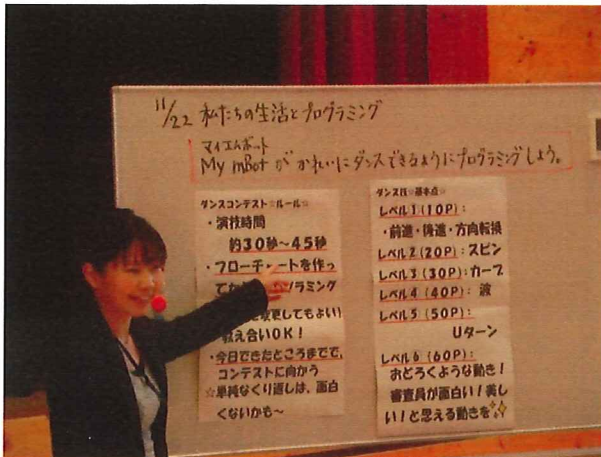 11/22 私たちの生活とプログラミング
マイエムボット
My mBot が かれいにダンスできるようにプログラミングしよう。
ダンスコンテスト☆ルール☆
・演技時間
約30秒～45秒
・フローチャートを作っ
て
ラミング
変更してもよい!
教え合いOK!
・今日できたところまでで、
コンテストに向かう
☆単純なくり返しは、面白
くないかも～
ダンス技☆基本点☆
レベル1(10P):
・前進・後進・方向転換
レベル2(20P):スピン
レベル3(30P):カーブ
レベル4(40P):波
レベル5(50P):
Uターン
レベル6(60P):
おどろくような動き!
審査員が面白い!美し
い!と思える動きを✨